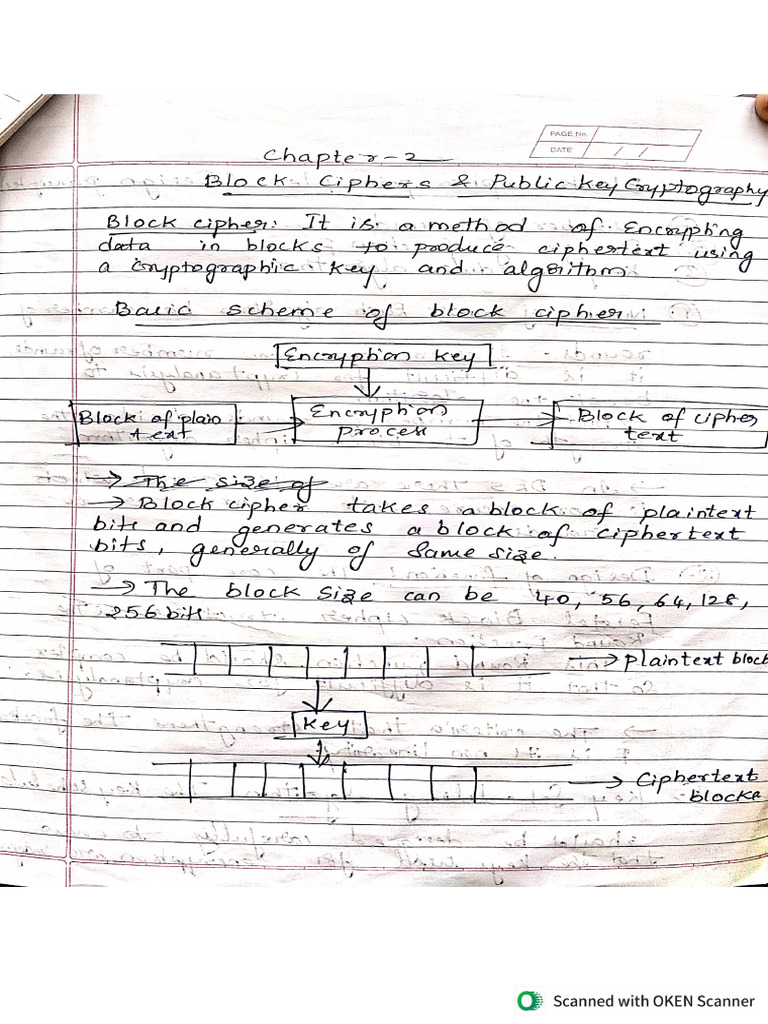 PAGE No.
DATE / /
Chapter-2
Block Ciphers & Public Key Cryptography
Block cipher: It is a method of Encrypting
data in blocks to produce ciphertext using
a cryptographic key and algorithm
Basic scheme of block cipher
Encryption key
Block of plain
text
Encryption
process
Block of cipher
text
→ The size of
→ Block cipher takes a block of plaintext
bits and generates a block of ciphertext
bits, generally of same size.
→ The block size can be 40, 56, 64, 128,
256 bits
→ plaintext block
Key
→ Ciphertext
blocks
Scanned with OKEN Scanner